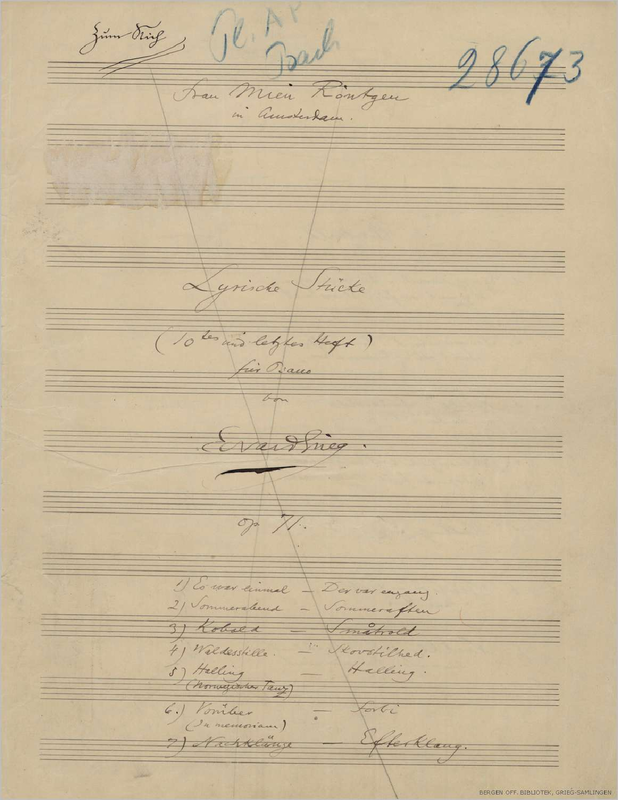 Zum Stich
Pl. A P
Bach
28673
Frau Mien Röntgen
in Amsterdam.
Lyrische Stücke
(10tes und letztes Heft)
für Piano
von
Edvard Grieg.
op 71.
1) Es war einmal — Der var engang.
2) Sommerabend — Sommeraften
3) Kobold — Småtrold.
4) Waldesstille. — Skovstilhed.
5) Halling — Halling.
(Norwegischer Tanz)
6.) Vorüber — Forbi
(In memoriam)
7) Nachklänge — Efterklang.
BERGEN OFF. BIBLIOTEK, GRIEG-SAMLINGEN